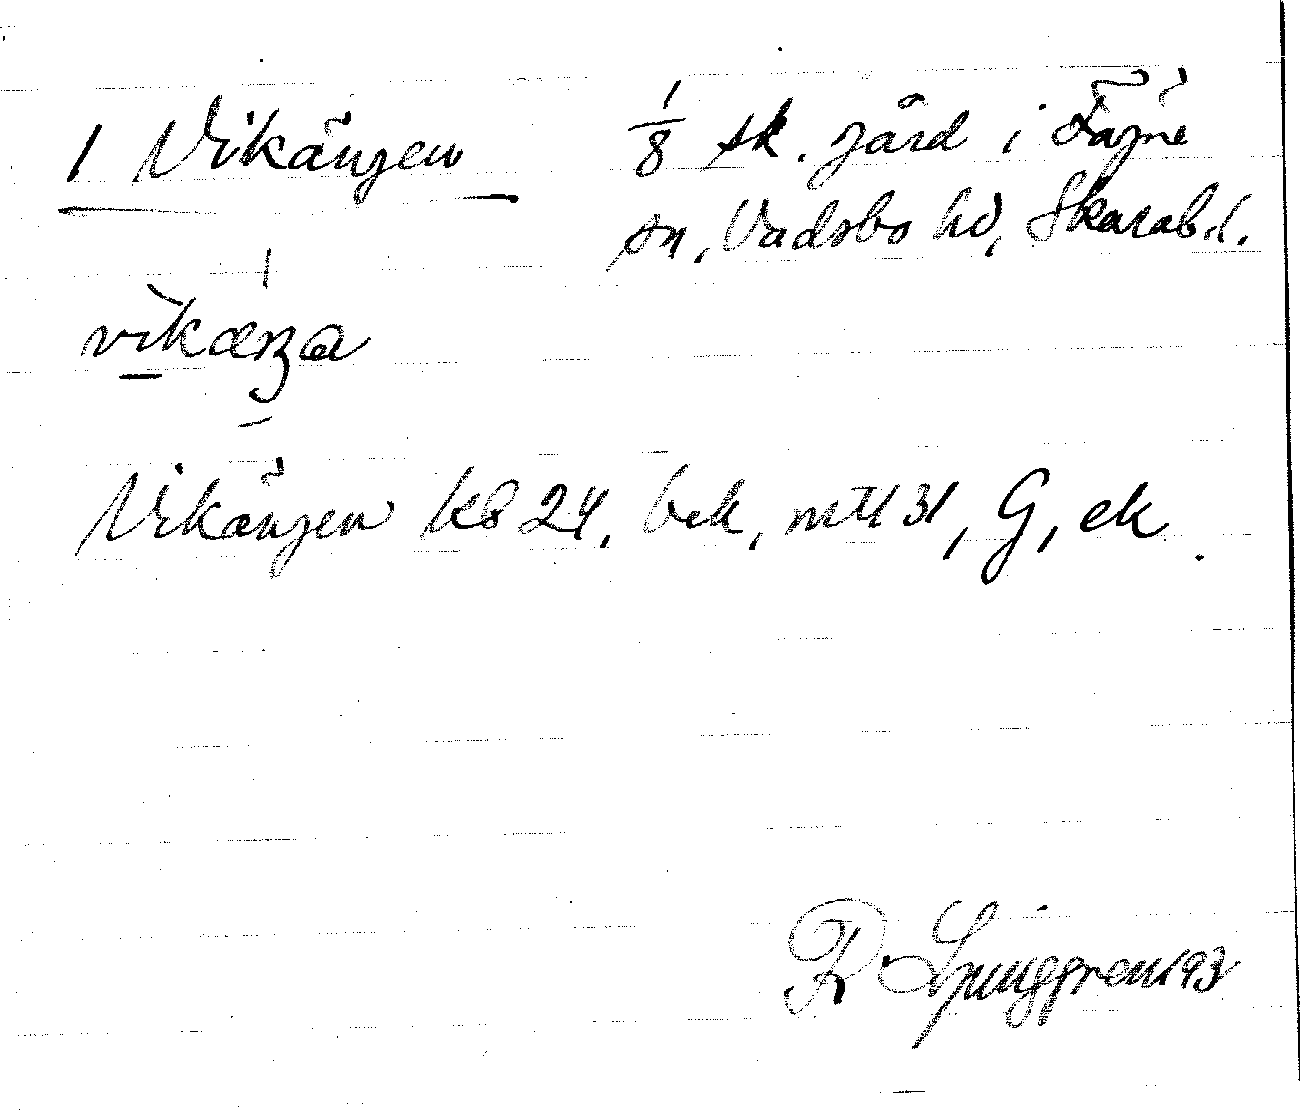 1 Vikängen 1/8 sk. gård i Fägre
sn, Vadsbo hd, Skarab. l.
Vikängen KB 24, bek, mtl 31, G, ek.
R Ljunggren 193